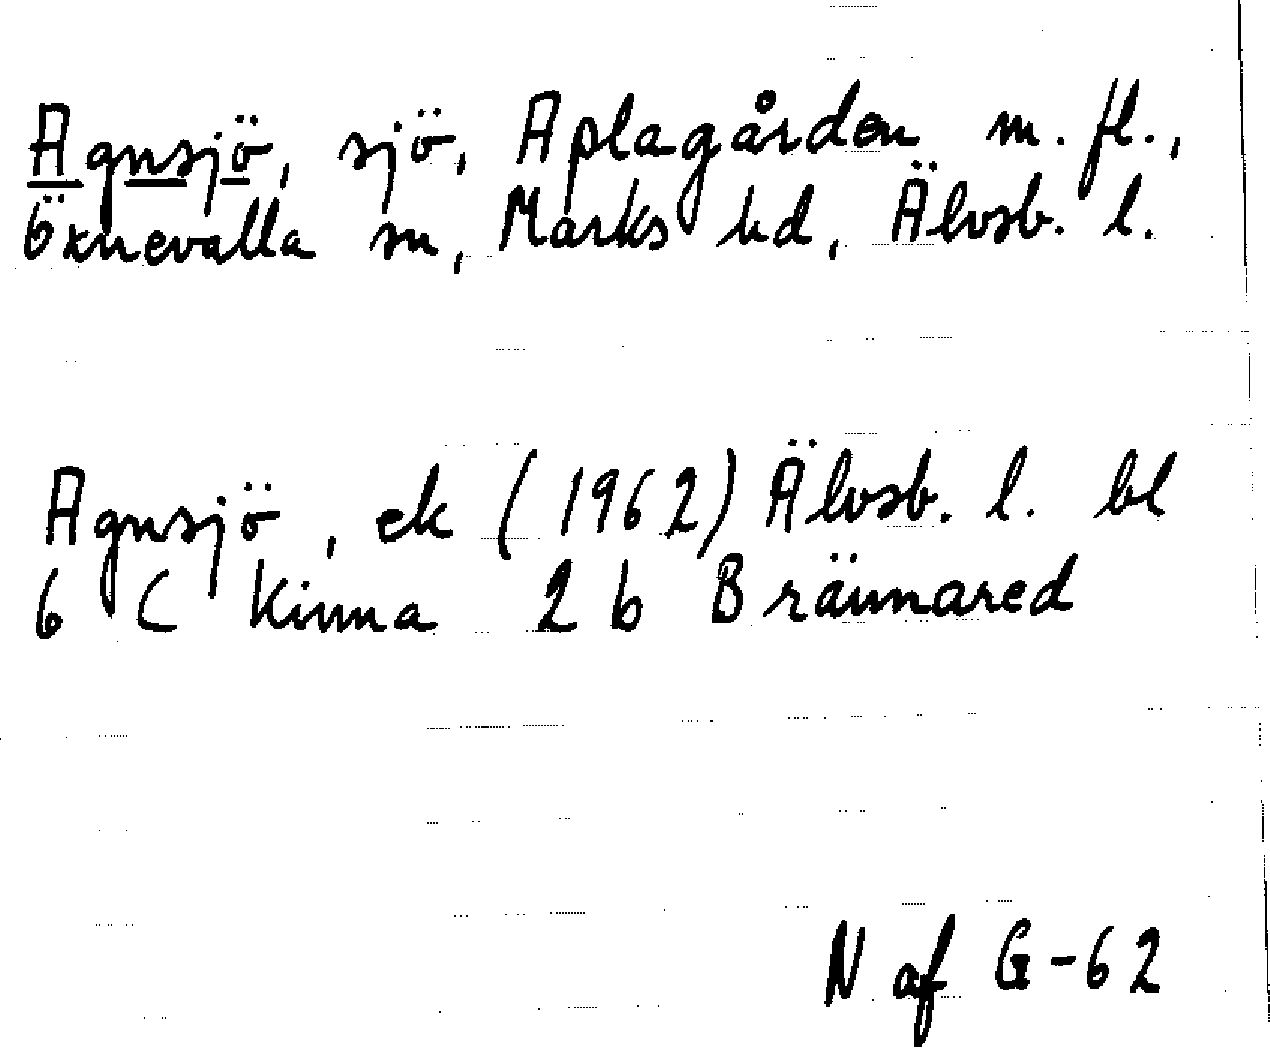 Agnsjö, sjö, Aplagården m. fl.,
Öxnevalla sn, Marks hd, Älvsb. l.
Agnsjö, ek (1962) Älvsb. l. bl
6 C Kinna 2 b Brännared
N af G-62